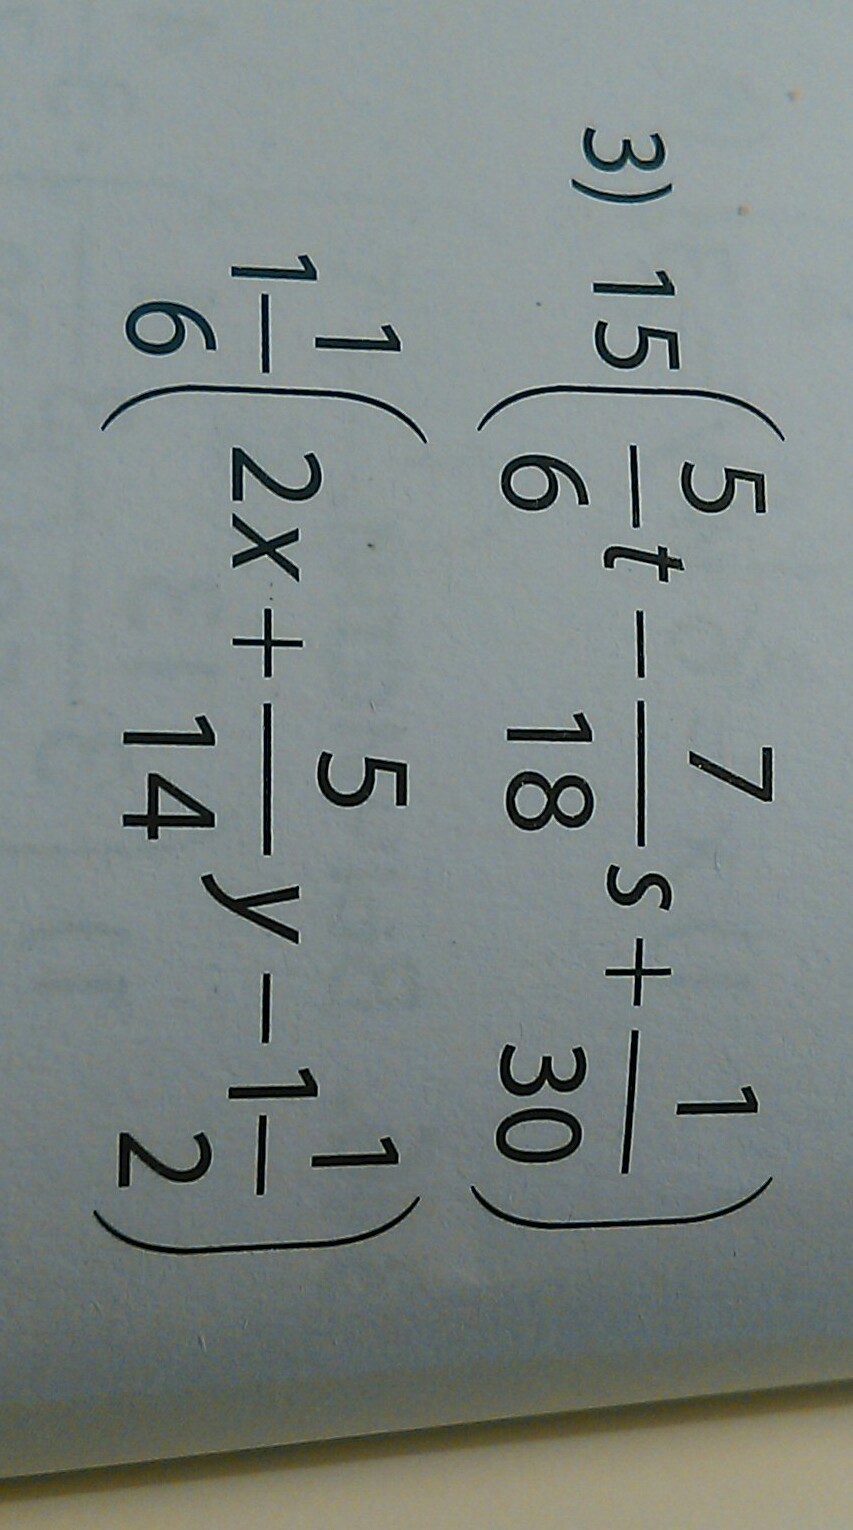 3) 15(5/6 t − 7/18 s + 1/30)
1 1/6 (2x + 5/14 y − 1 1/2)